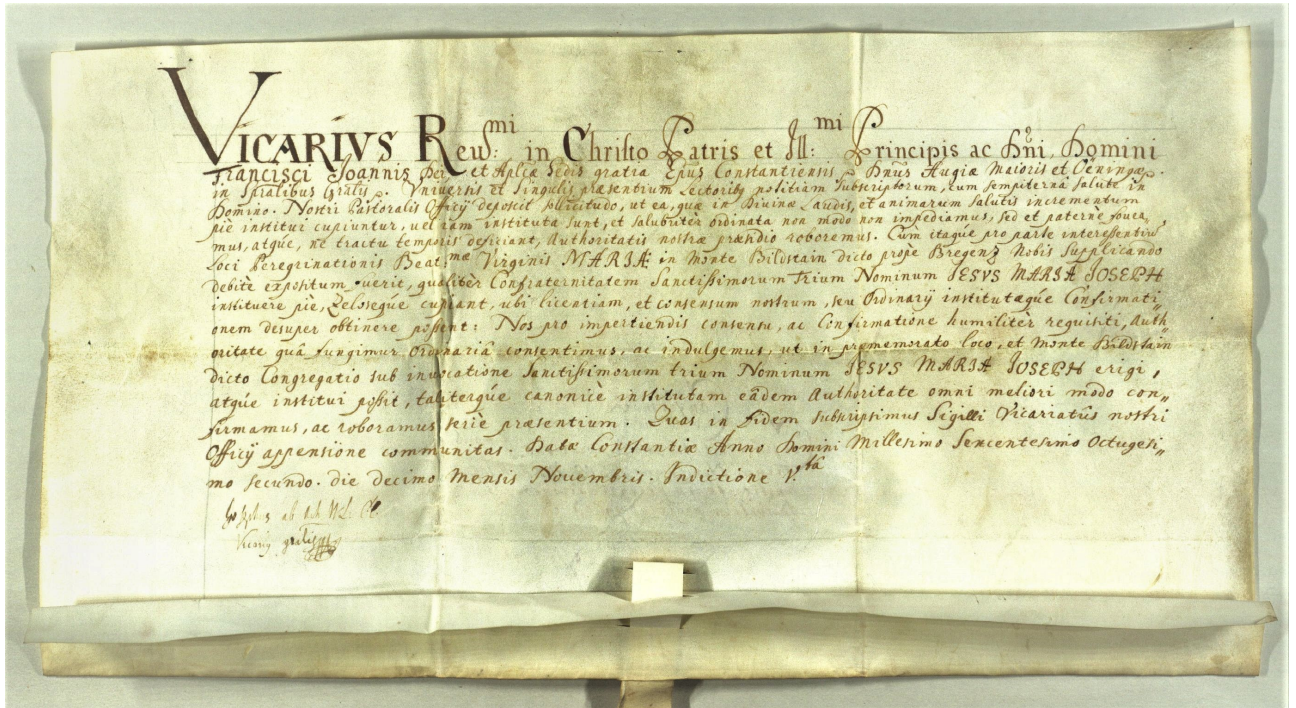 VICARIVS Reud:mi in Christo Patris et Ill:mi Principis ac Dñi, Domini
Francisci Joannis Dei et Aplicæ Sedis gratia Epus Constantiensis, Dñus Augiæ Maioris et Öeningæ.
in Spralibus Gnalis. Vniversis et Singulis præsentium Lectoribq notitiam Subscriptorum, cum sempiterna salute in
Domino. Nostri Pastoralis Officÿ deposcit sollicitudo, ut ea, quæ in Diuinæ Laudis, et animarum salutis incrementum
pie institui cupiuntur, uel iam instituta sunt, et salubritèr ordinata non modo non impediamus, sed et paterne fouea,,
mus, atque, ne tractu temporis deficiant, Authoritatis nostræ præsidio roboremus. Cùm itaque pro parte interessentium
Loci Peregrinationis Beat:mæ Virginis MARIÆ in Monte Bildstain dicto prope Bregenz Nobis Supplicando
debitè expositum fuerit, qualitèr Confraternitatem Sanctissimorum Trium Nominum IESVS MARIA IOSEPH
instituere piè, Zeloseque cupiant, ubi licentiam, et consensum nostrum, seu Ordinarÿ institutæque Confirmati,,
onem desuper obtinere possent: Nos pro impertiendis consensu, ac Confirmatione humilitèr requisiti, Auth,,
oritate quâ fungimur Ordinariâ consentimus, ac indulgemus, ut in præmemorato Loco, et Monte Bildstain
dicto Congregatio sub inuocatione Sanctissimorum trium Nominum IESVS MARIA IOSEPH erigi,
atque institui possit, taliterque canonicè institutam eâdem Authoritate omni meliori modo con,,
firmamus, ac roboramus seriè præsentium. Quas in fidem subscripsimus Sigilli Vicariatûs nostri
Officÿ appensione communitas. Datæ Constantiæ Anno Domini Millesimo Sexcentesimo Octugesi,,
mo secundo. die decimo Mensis Nouembris. Indictione V.tâ